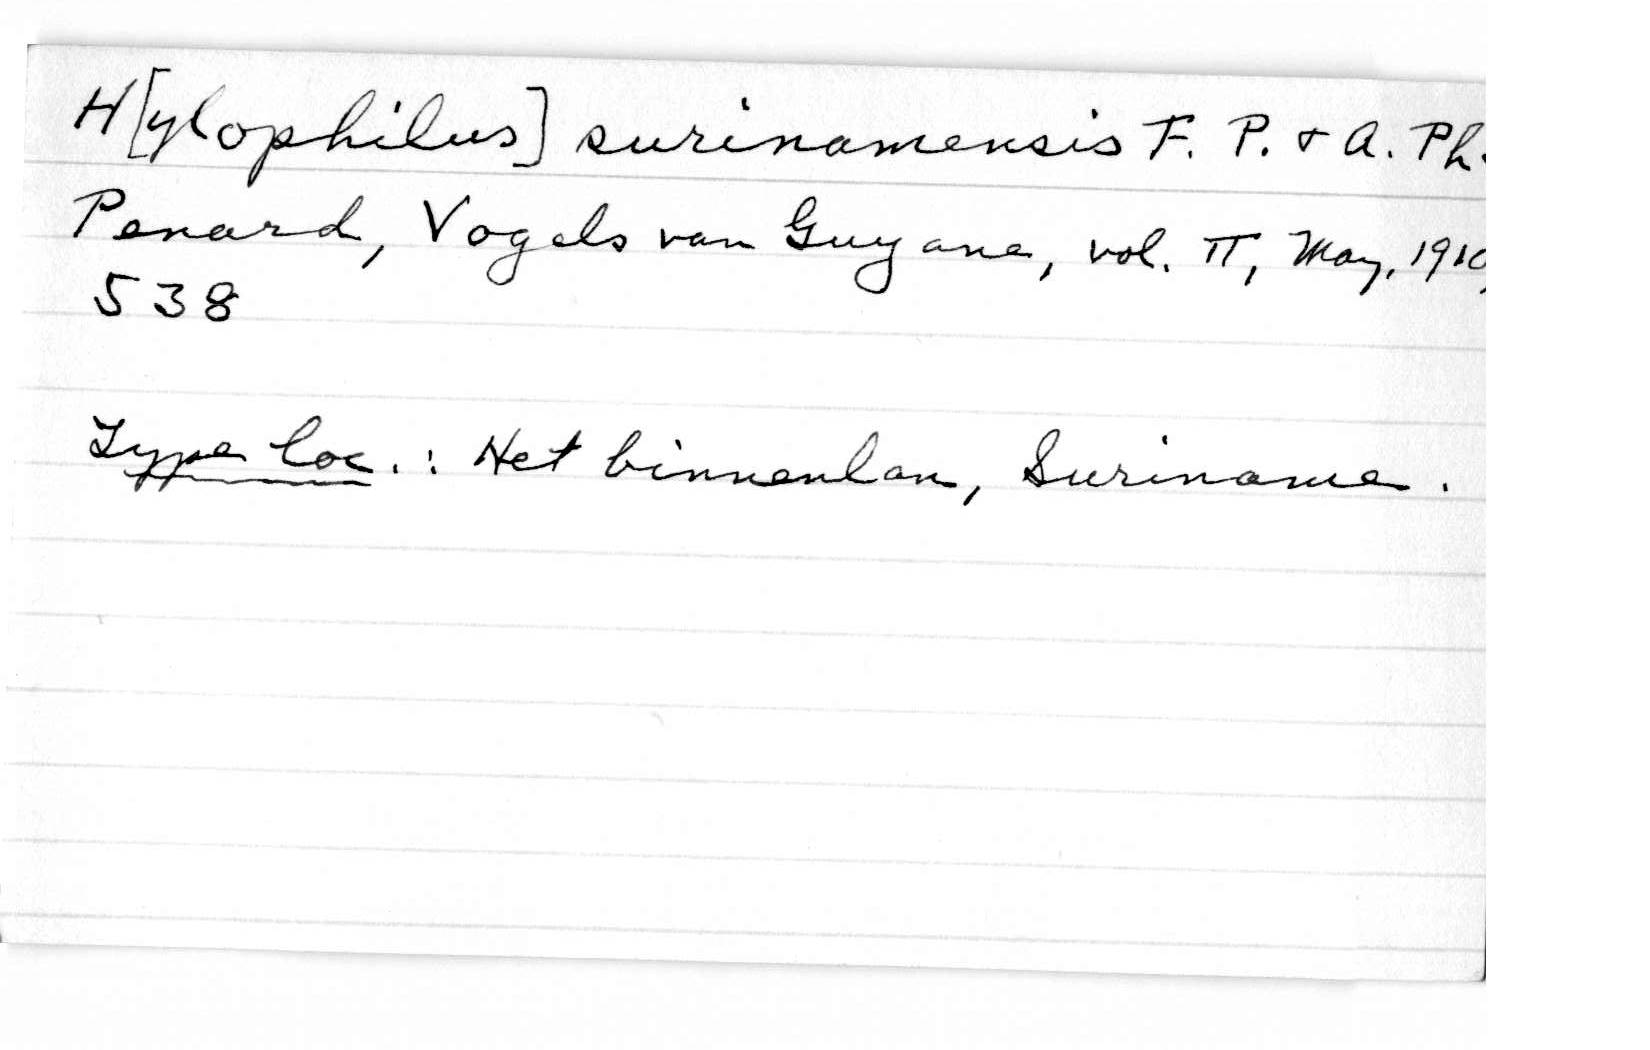 H[ylophilus] surinamensis F. P. & A. Ph.
Penard, Vogels van Guyana, vol. II, May, 1910,
538
Type loc.: Het binnenlan, Suriname.